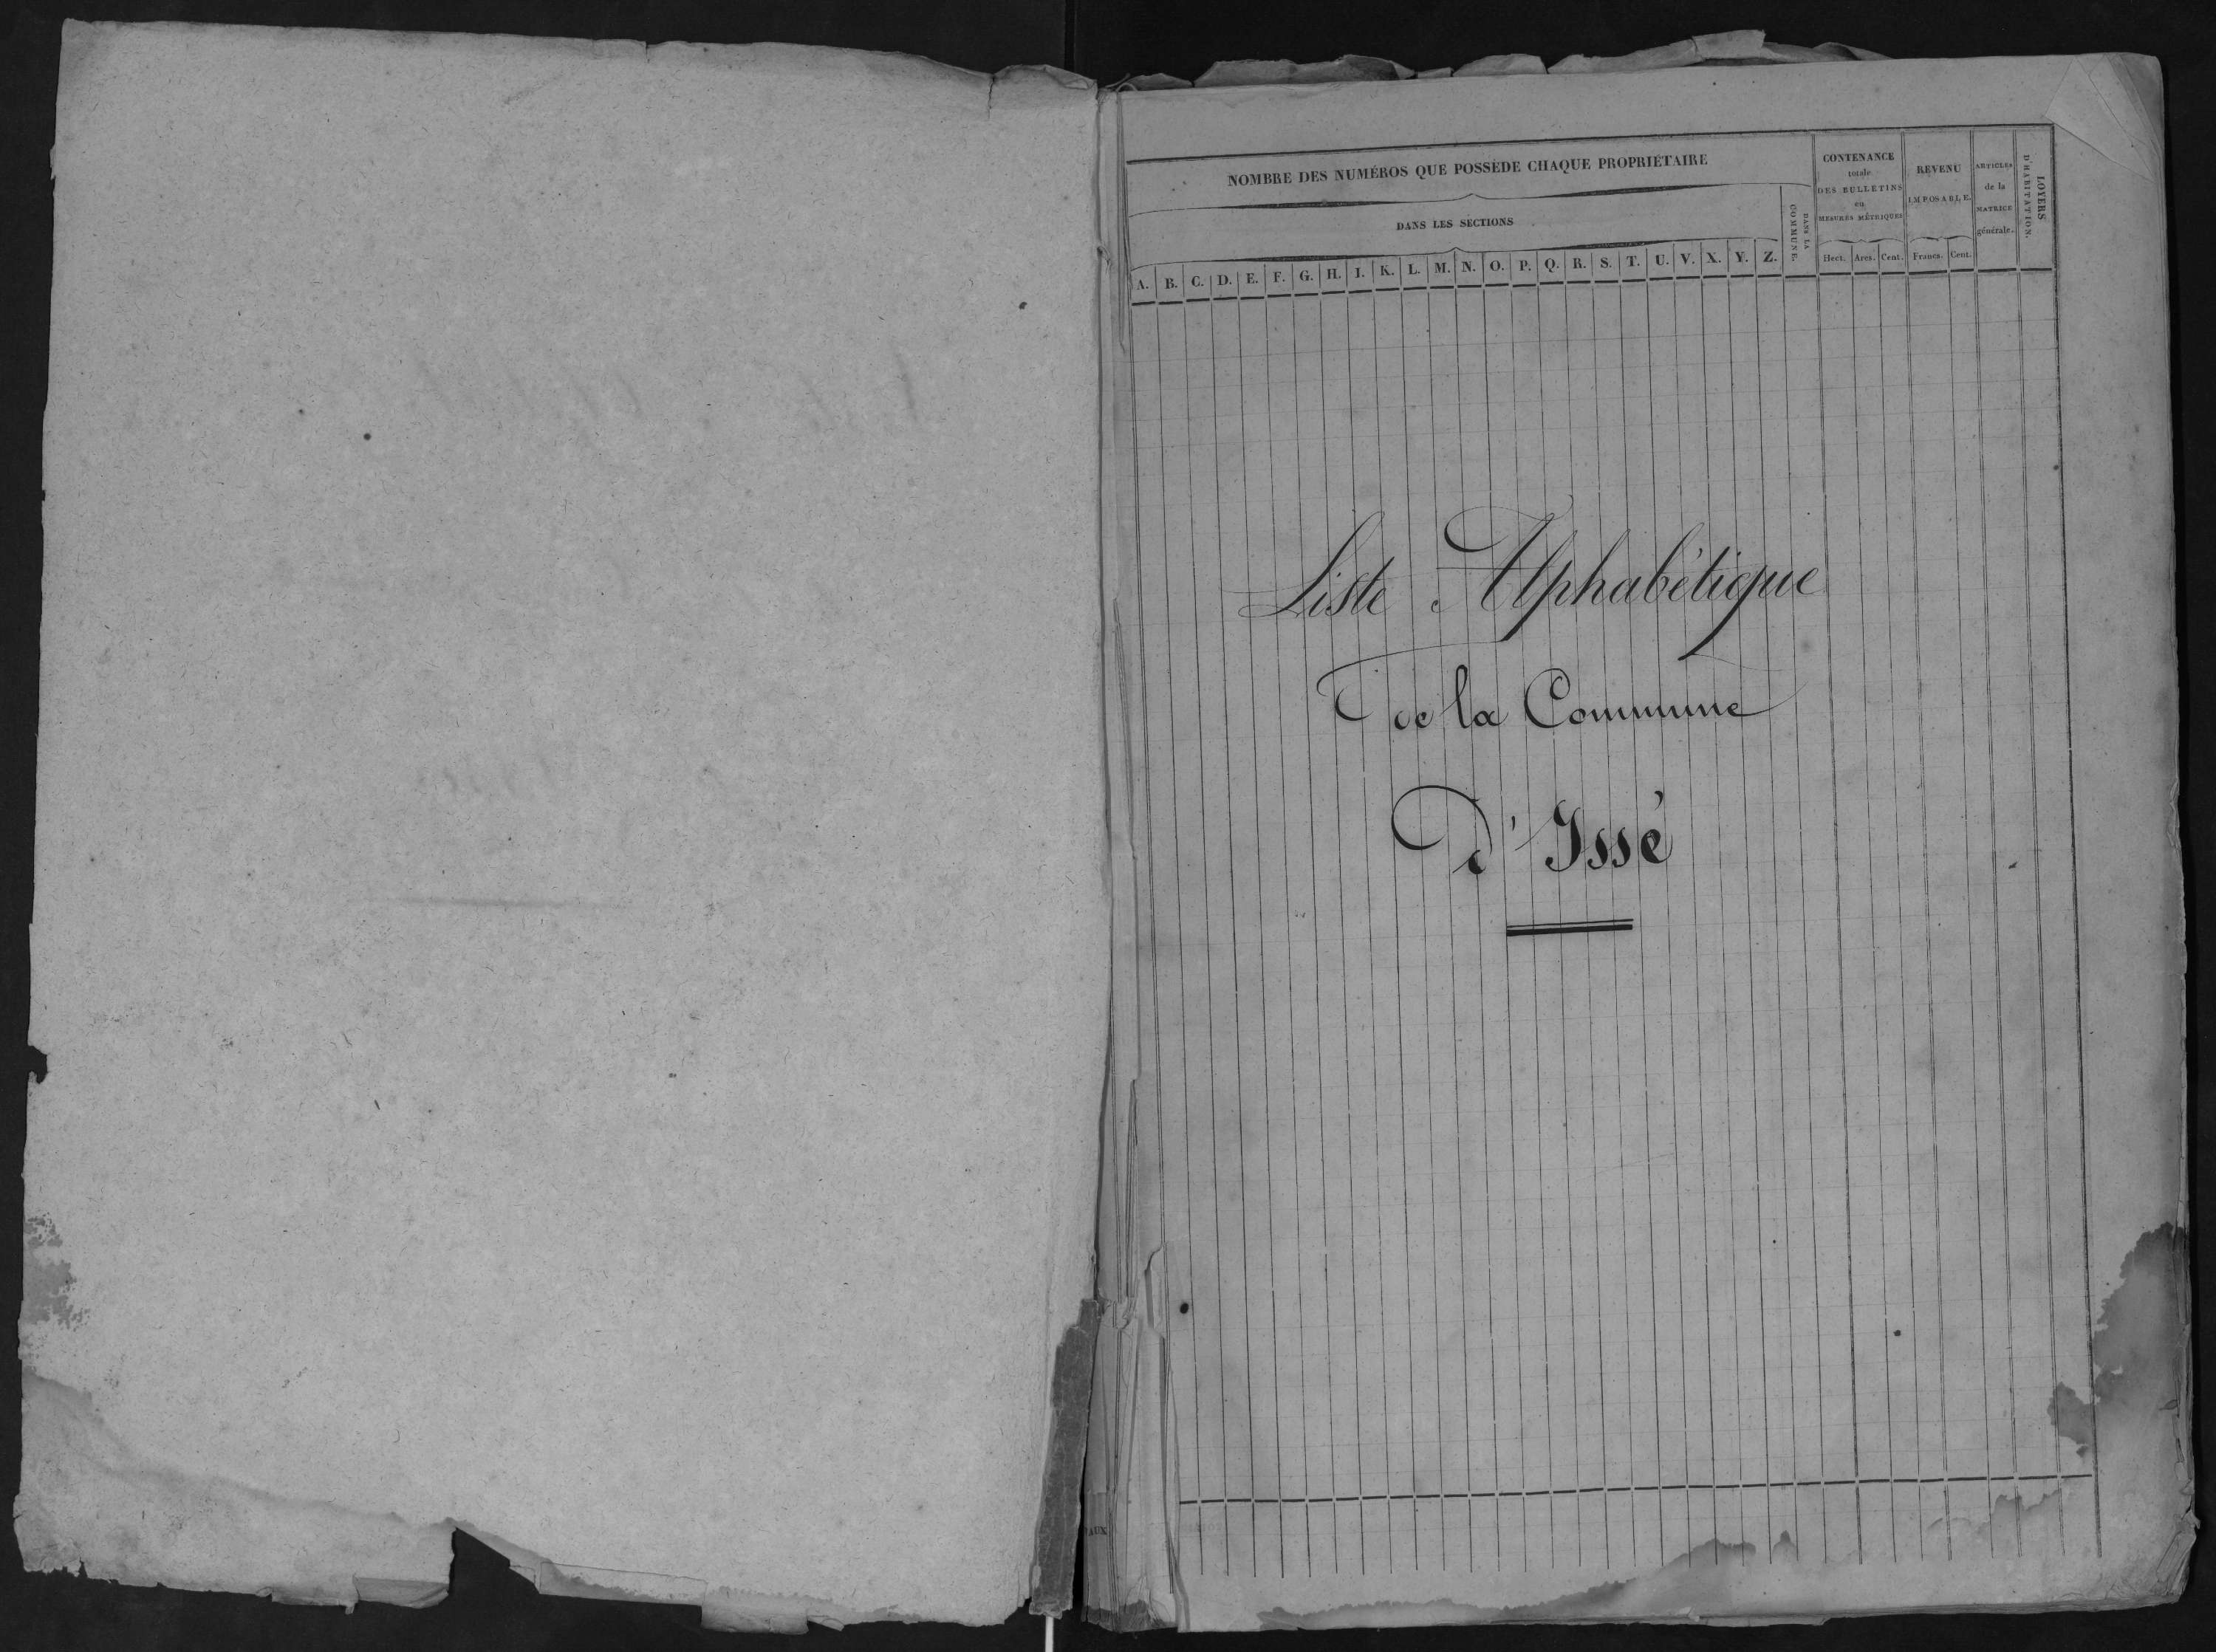 NOMBRE DES NUMÉROS QUE POSSÈDE CHAQUE PROPRIÉTAIRE
DANS LES SECTIONS
DANS LA COMMUNE.
A. B. C. D. E. F. G. H. I. K. L. M. N. O. P. Q. R. S. T. U. V. X. Y. Z.
CONTENANCE
totale
DES BULLETINS
en
MESURES MÉTRIQUES
Hect. Ares. Cent.
REVENU
IMPOSABLE.
Francs. Cent.
ARTICLES
de la
MATRICE
générale.
LOYERS
D'HABITATION.
Liste Alphabétique
de la Commune
d'Issé
AUX